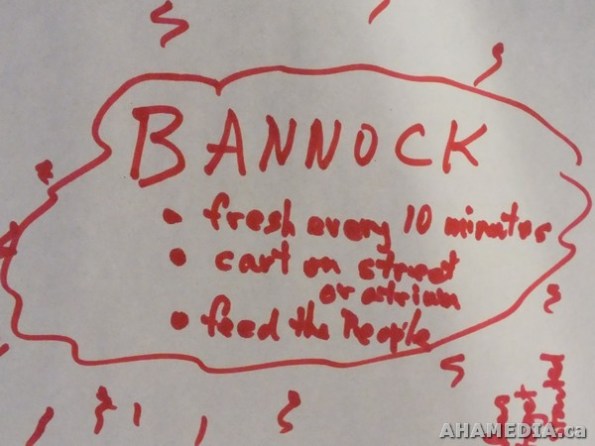 BANNOCK
• fresh every 10 minutes
• cart on street
or atrium
• feed the People
AHAMEDIA.ca